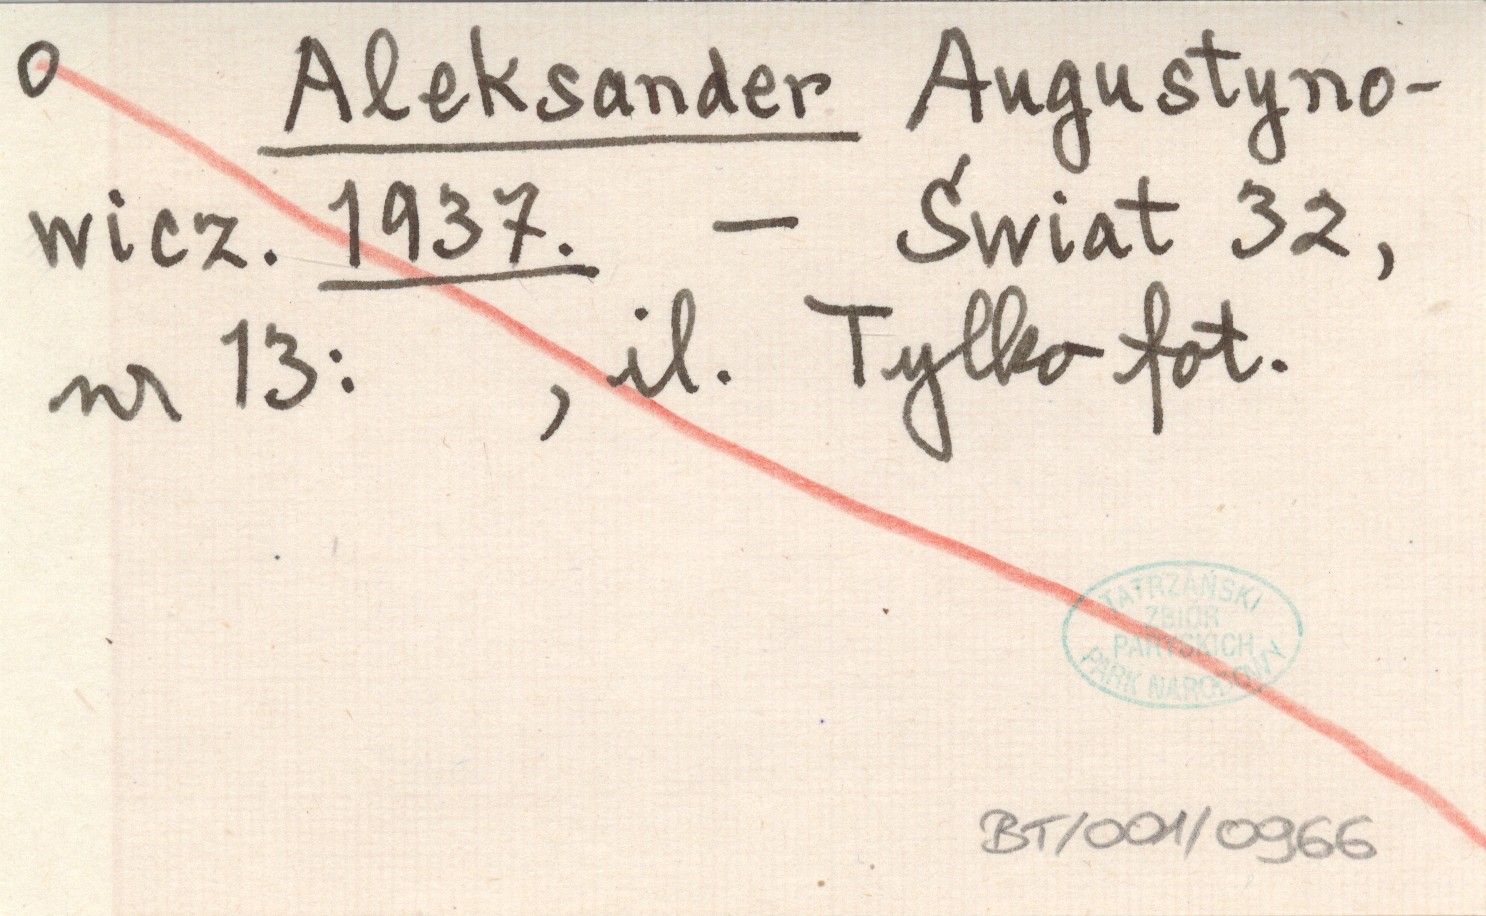 O Aleksander Augustyno-
wicz. 1937. – Świat 32,
nr 13: , il. Tylko fot.
TATRZAŃSKI
ZBIÓR
PARYSKICH
PARK NARODOWY
BT/001/0966